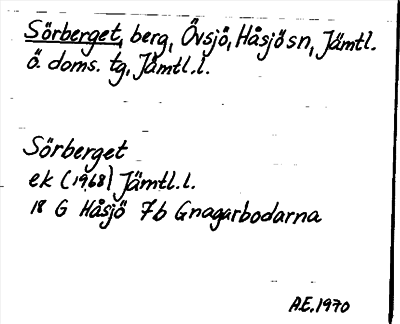 Sörberget, berg, Övsjö, Håsjö sn, Jämtl.
ö. doms. tg, Jämtl. l.
Sörberget
ek (1968) Jämtl. l.
18 G Håsjö 7b Gnagarbodarna
A.E. 1970